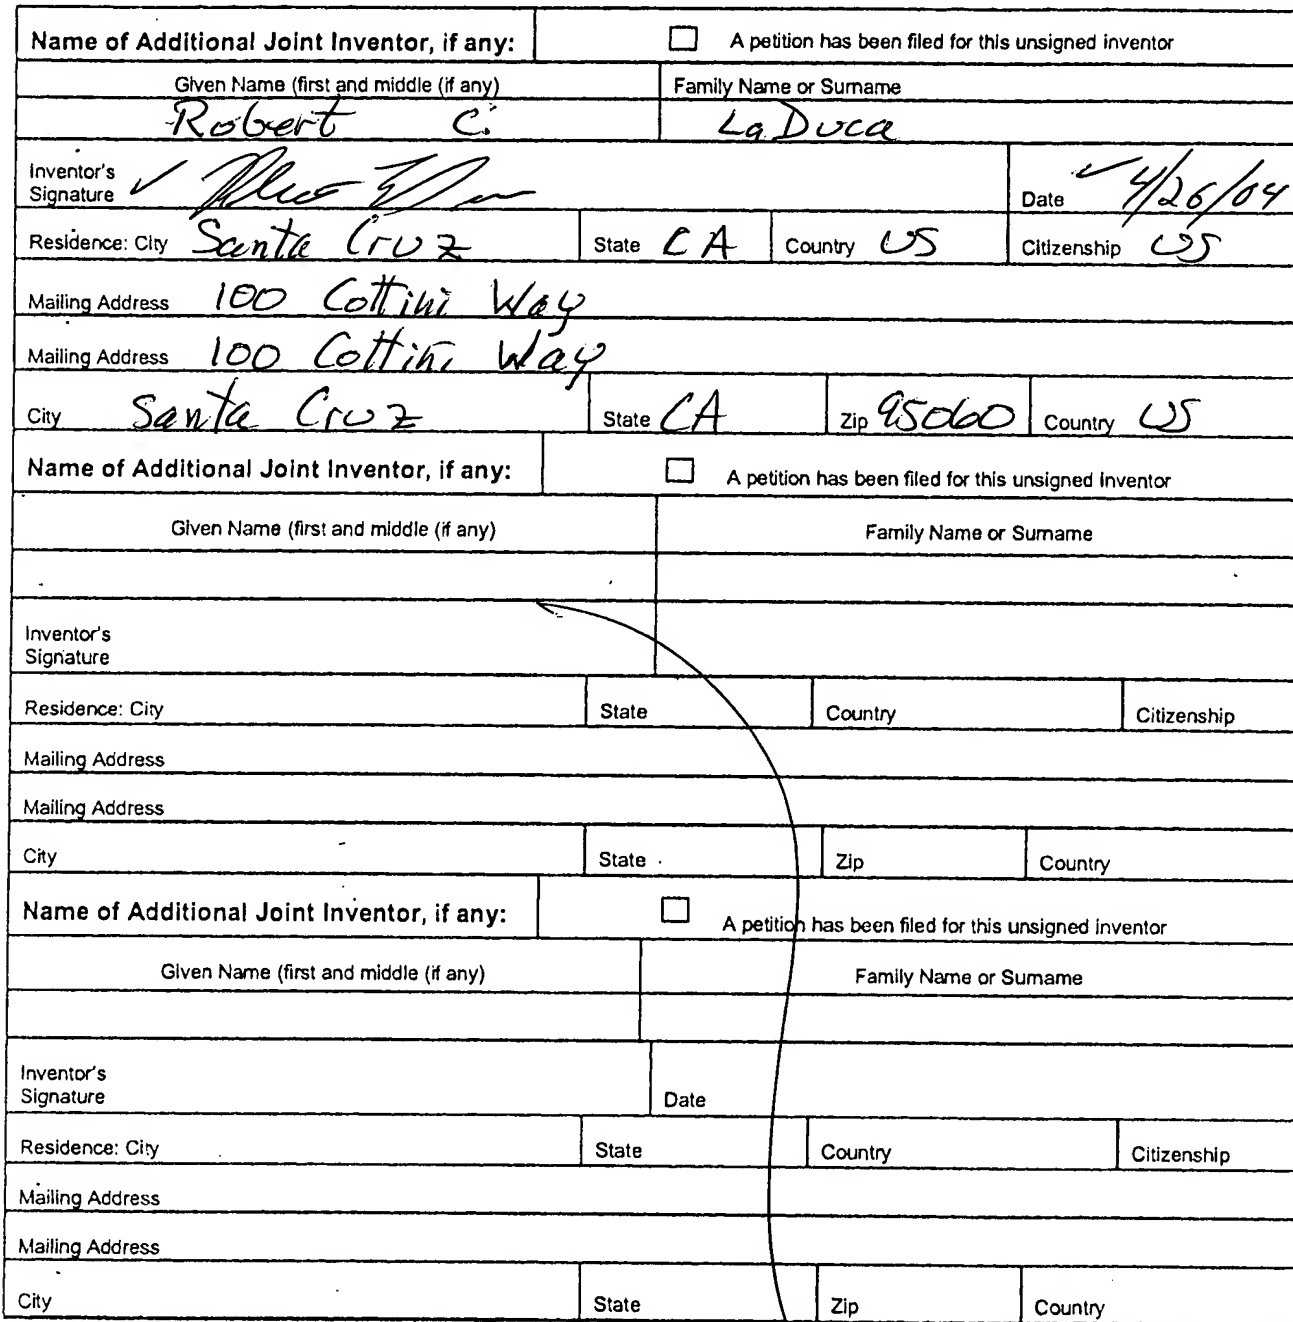 Name of Additional Joint Inventor, if any: A petition has been filed for this unsigned inventor
Given Name (first and middle (if any) Family Name or Surname
Robert C. LaDuca
Inventor's
Signature Date 4/26/04
Residence: City Santa Cruz State CA Country US Citizenship US
Mailing Address 100 Cottini Way
Mailing Address 100 Cottini Way
City Santa Cruz State CA Zip 95060 Country US
Name of Additional Joint Inventor, if any: A petition has been filed for this unsigned inventor
Given Name (first and middle (if any) Family Name or Surname
Inventor's
Signature
Residence: City State Country Citizenship
Mailing Address
Mailing Address
City State Zip Country
Name of Additional Joint Inventor, if any: A petition has been filed for this unsigned inventor
Given Name (first and middle (if any) Family Name or Surname
Inventor's
Signature Date
Residence: City State Country Citizenship
Mailing Address
Mailing Address
City State Zip Country